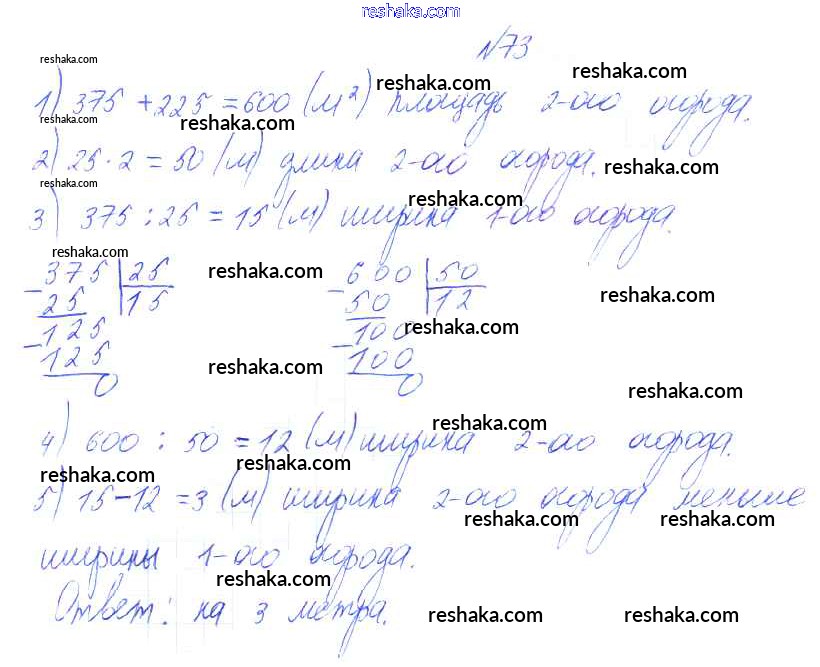 reshaka.com
№73
reshaka.com reshaka.com reshaka.com
1) 375 + 225 = 600 (м²) площадь 2-ого огорода.
reshaka.com reshaka.com
2) 25 · 2 = 50 (м) длина 2-ого огорода.
reshaka.com
reshaka.com reshaka.com
3) 375 : 25 = 15 (м) ширина 1-ого огорода.
reshaka.com
375 25 reshaka.com 600 50
25 15 50 12 reshaka.com
125 100 reshaka.com
125 reshaka.com 100
0 0
reshaka.com
reshaka.com
4) 600 : 50 = 12 (м) ширина 2-ого огорода.
reshaka.com reshaka.com
5) 15 - 12 = 3 (м) ширина 2-ого огорода меньше
reshaka.com reshaka.com
ширины 1-ого огорода.
reshaka.com
Ответ: на 3 метра.
reshaka.com reshaka.com